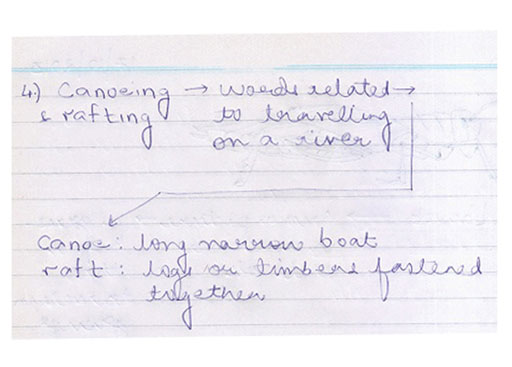 4.) Canoeing → words related →
& rafting to travelling
on a river
Canoe : long narrow boat
raft : logs or timbers fastened
together